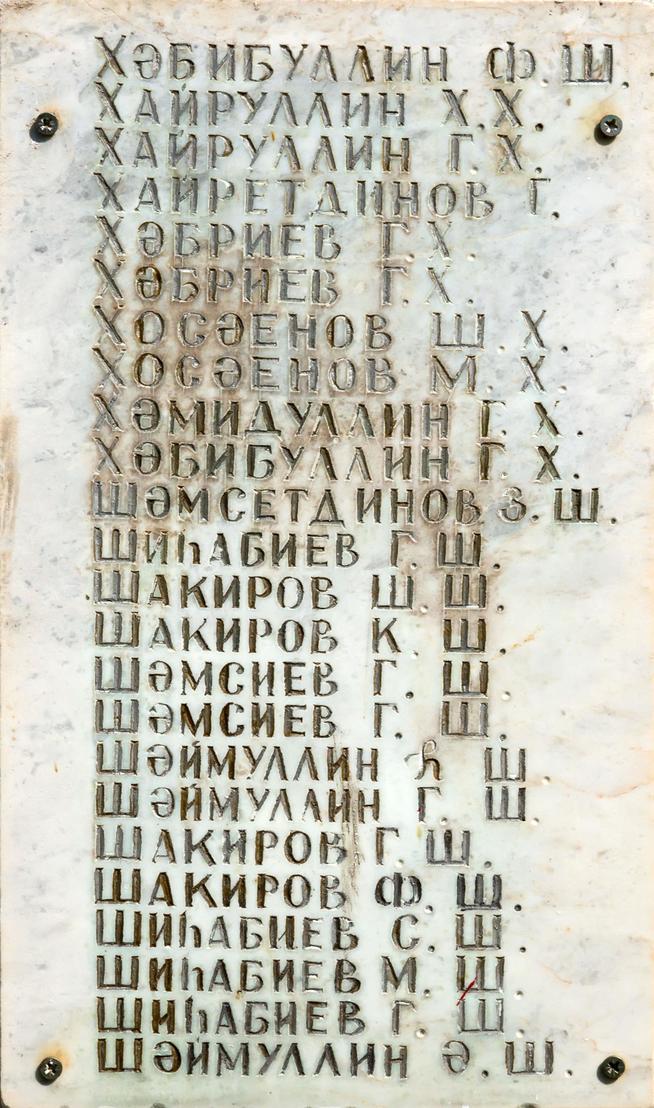 ХӘБИБУЛЛИН Ф.Ш.
ХАЙРУЛЛИН Х.Х.
ХАЙРУЛЛИН Г.Х.
ХАЙРЕТДИНОВ Г.
ХӘБРИЕВ Г.Х.
ХӘБРИЕВ Г.Х.
ХОСӘЕНОВ Ш.Х.
ХОСӘЕНОВ М.Х.
ХӘМИДУЛЛИН Г.Х.
ХӘБИБУЛЛИН Г.Х.
ШӘМСЕТДИНОВ З.Ш.
ШИҺАБИЕВ Г.Ш.
ШАКИРОВ Ш.Ш.
ШАКИРОВ К.Ш.
ШӘМСИЕВ Г.Ш.
ШӘМСИЕВ Г.Ш.
ШӘЙМУЛЛИН Һ.Ш.
ШӘЙМУЛЛИН Г.Ш.
ШАКИРОВ Г.Ш.
ШАКИРОВ Ф.Ш.
ШИҺАБИЕВ С.Ш.
ШИҺАБИЕВ М.Ш.
ШИҺАБИЕВ Г.Ш.
ШӘЙМУЛЛИН Ә.Ш.